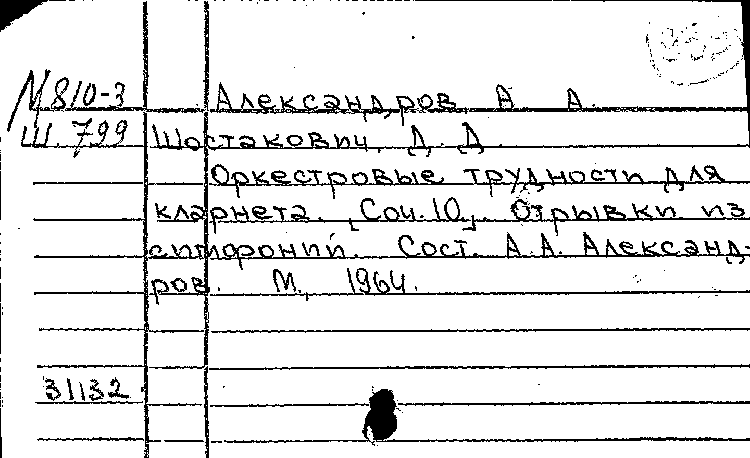 М 810-3 Александров, А. А.
Ш. 799 Шостакович, Д. Д.
Оркестровые трудности для
кларнета. [Соч. 10]. Отрывки из
симфоний. Сост. А. А. Александ-
ров. М., 1964.
31132